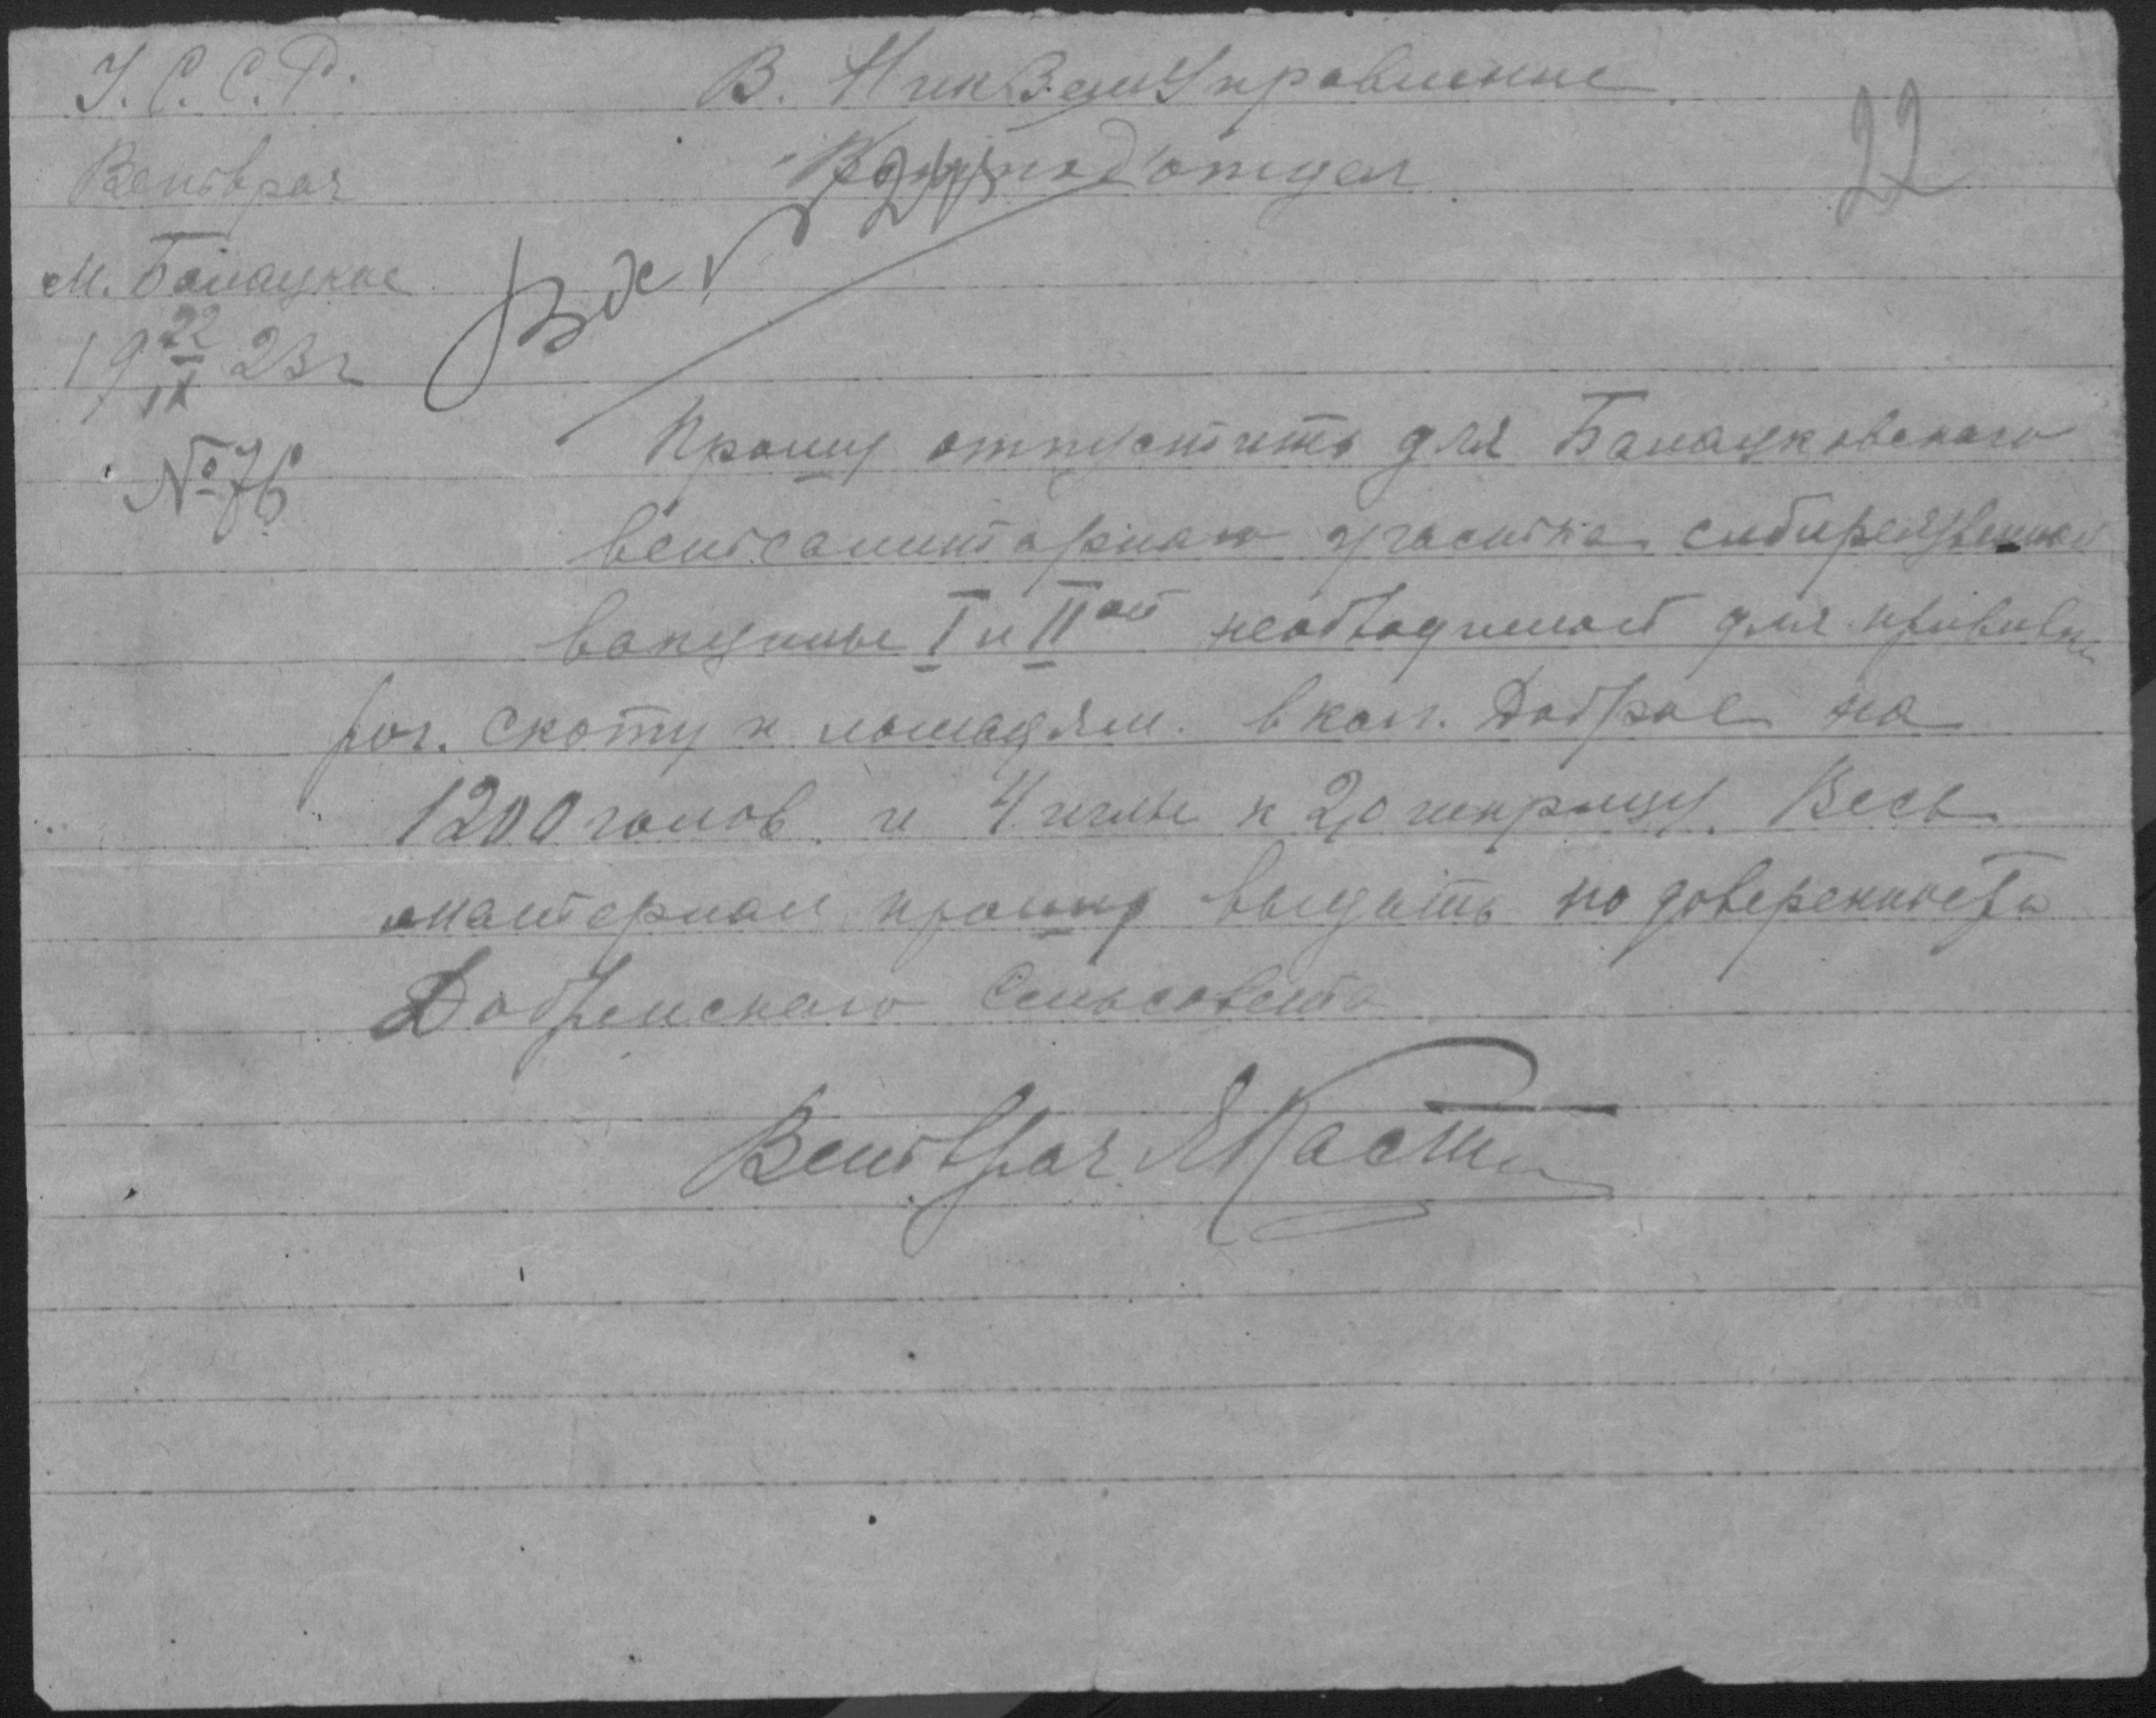 У. С. С. Р.
Ветврач
м. Башацкое
19 22/IX 23 г
№ 76
В. НикЗемУправление
под'отдел
22
Вх
Прошу отпустить для Башацковского
ветсанитарного участка сибиреязвенной
вакцины I и IIой необходимой для прививки
рог. скоту и лошадям в кол. Доброе на
1200 голов и 4 иглы к 2,0 шприцу. Весь
материал прошу выдать по доверенности
Добренского Сельсовета
Ветврач